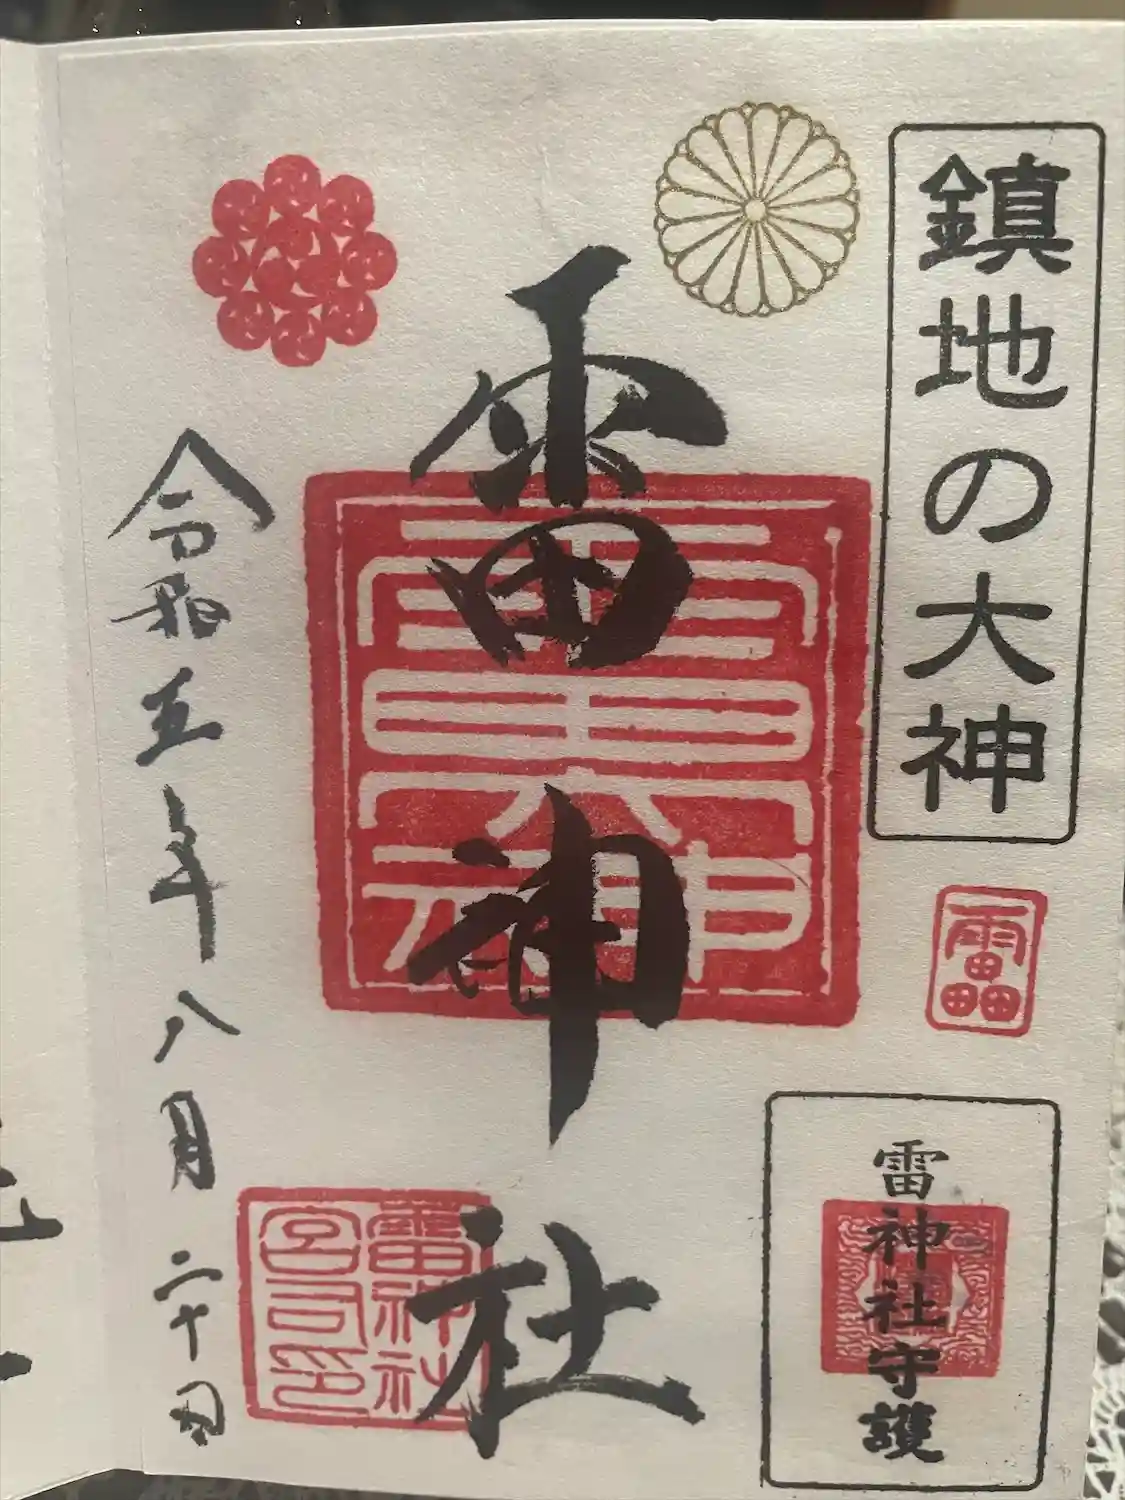 鎮地の大神
雷
雷神社守護
雷神社
雷大神
雷神社
宮司印
令和五年八月二十日